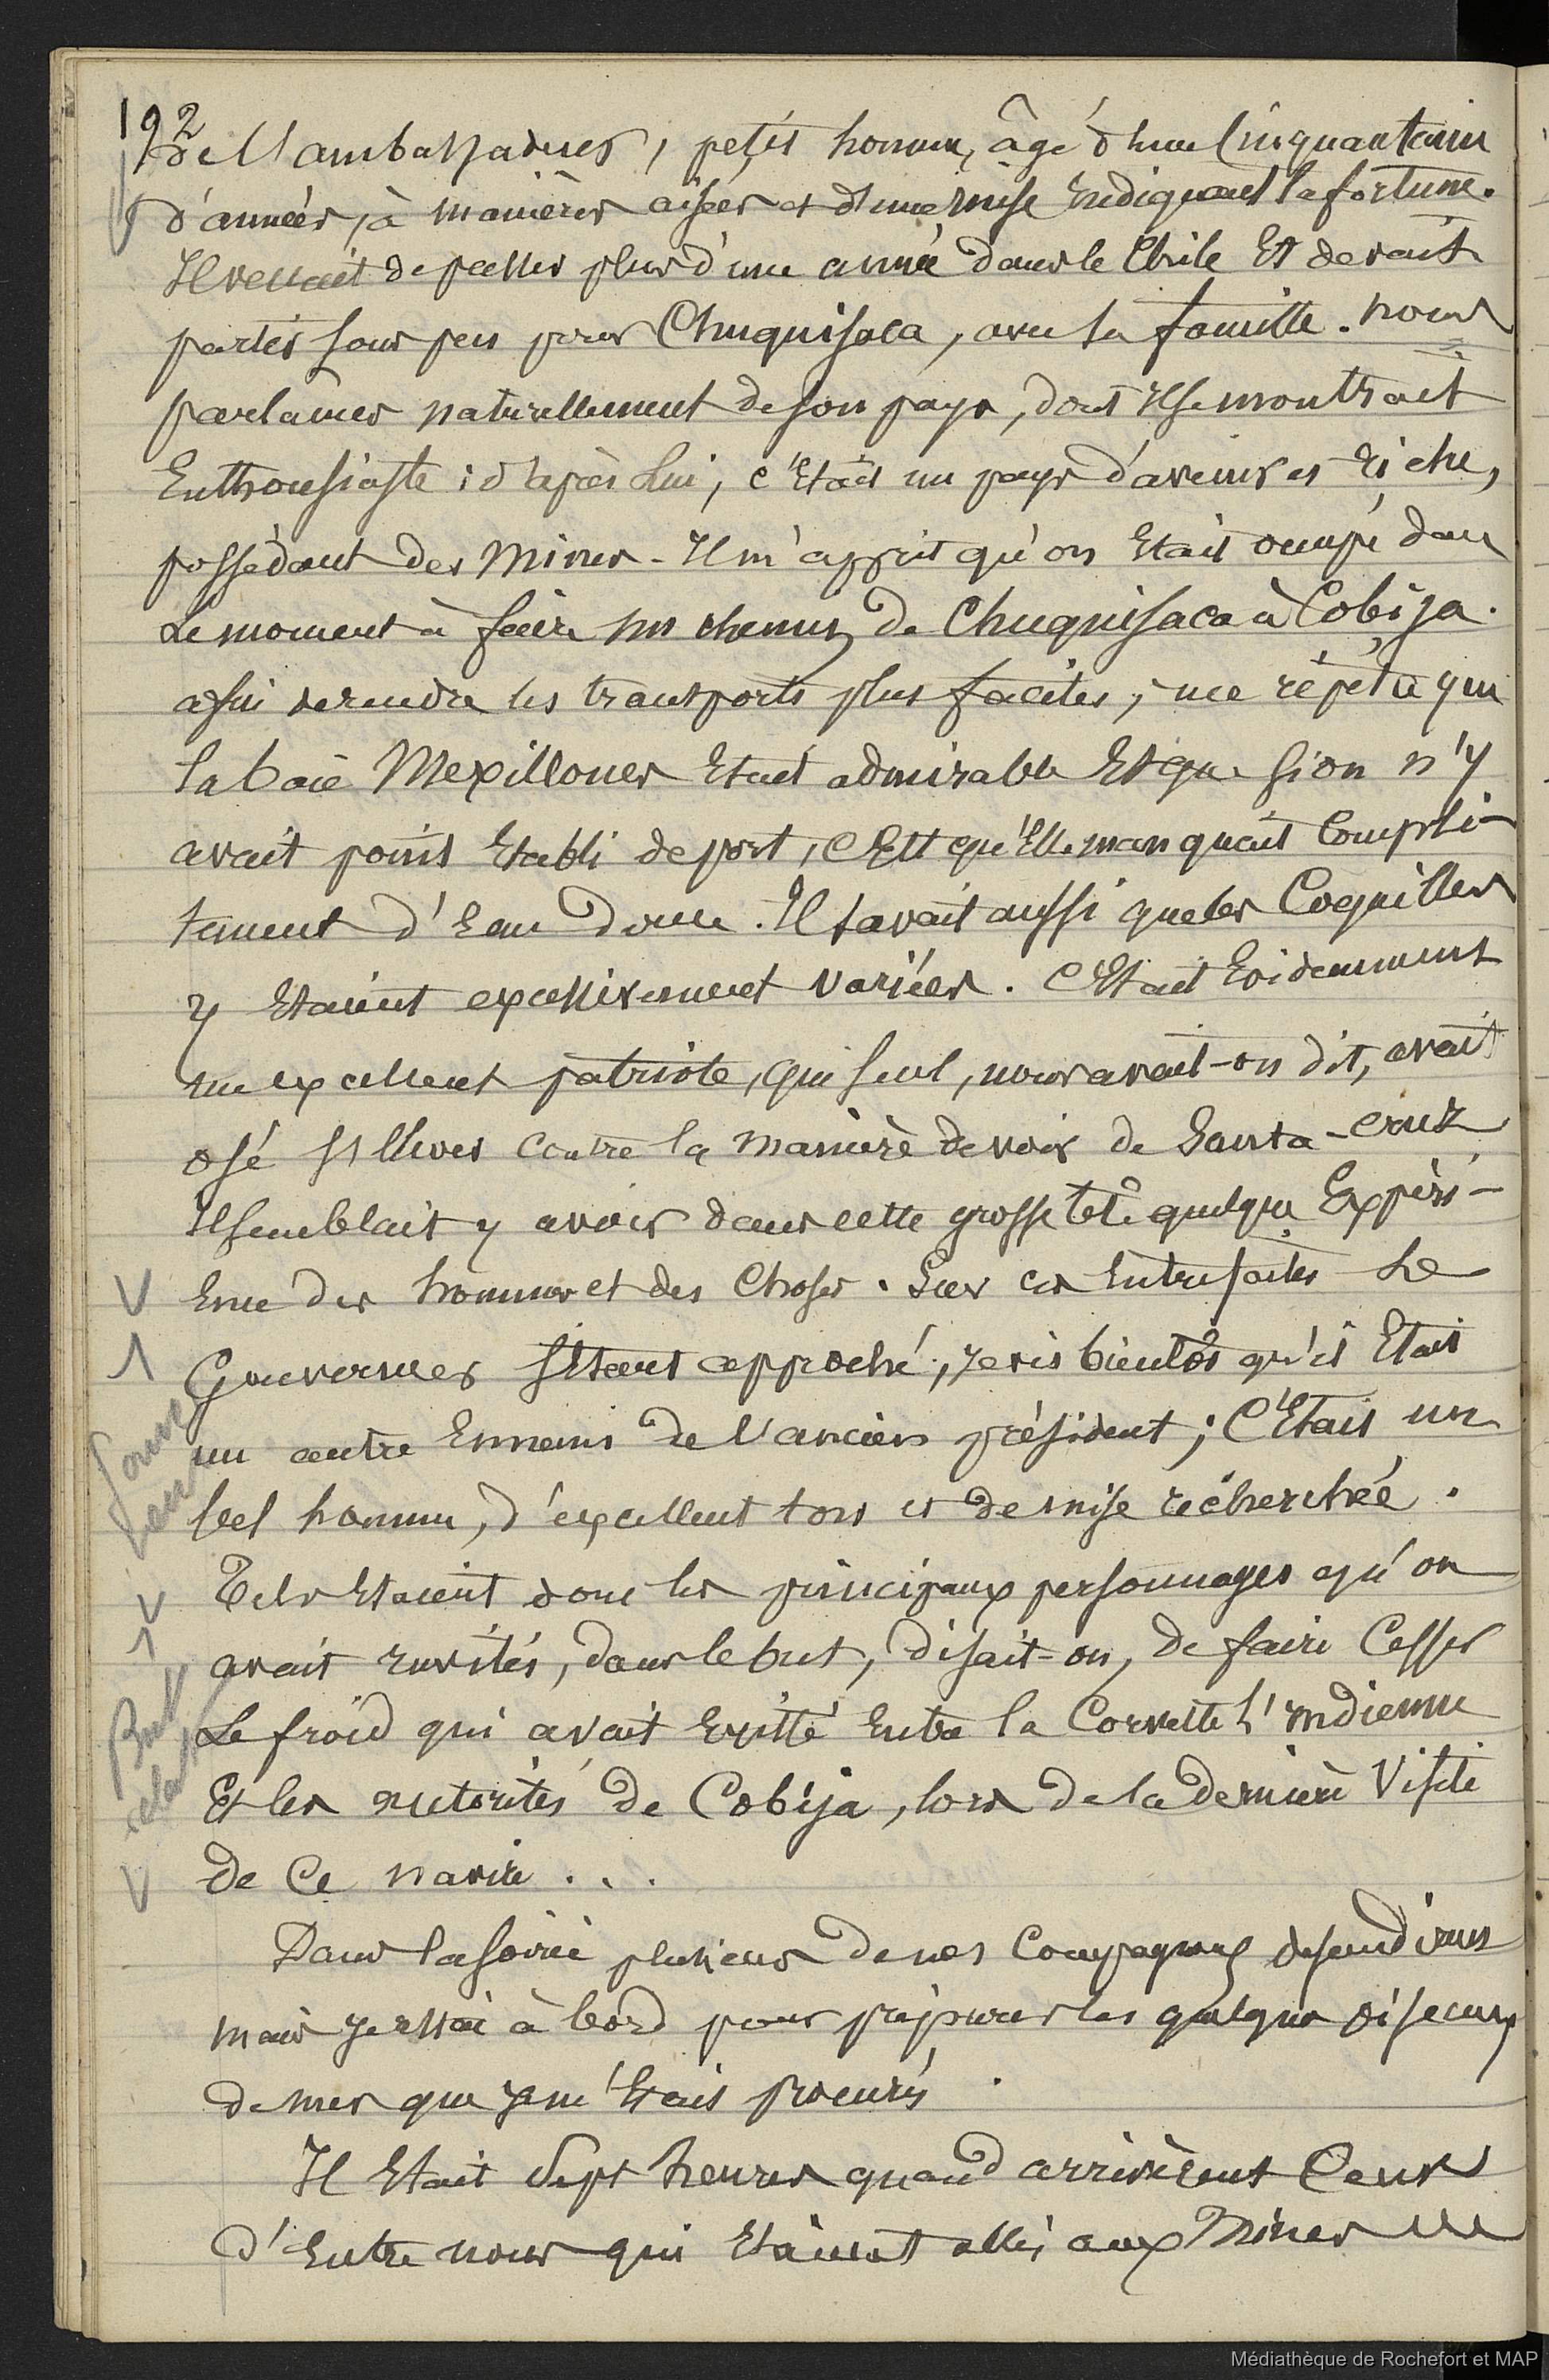 192
de l'ambassadeur, petit homme, âgé d'une Cinquantaine
d'années, à manières aisées et d'une mise Endiquant la fortune.
Il venait de passer plus d'une année dans le Chile Et devait
partir sous peu pour Chuquisaca, avec sa famille. nous
parlâmes naturellement de son pays, dont il se montrait
Enthousiaste : d'après lui, c'Etait un pays d'avenir et riche,
possédant des Mines - Il m'apprit qu'on Etait occupé dans
Le moment à faire un chemin de Chuquisaca à Cobija.
afin de rendre les transports plus faciles, me répéta que
la baie Mexillones Etait admirable Et que si on n'y
avait point Etabli de port, c'Est qu'Elle manquait Complè-
tement d'Eau douce. Il savait aussi que les Coquilles
y Etaient excessivement variées. C'Etait Evidemment
un excellent patriote, qui seul, nous avait-on dit, avait
osé s'Elever contre la manière de voir de Santa-Cruz
Il semblait y avoir dans cette grosse tête quelque Expéri-
Ence des hommes et des Choses. Sur ces Entrefaites Le
Gouverneur s'Etant approché, je vis bientôt qu'il Etait
un autre Ennemi de l'ancien président ; C'Etait un
bel homme, d'excellent ton et de mise recherchée.
Tels Etaient donc les principaux personnages qu'on
avait invités, dans le but, disait-on, de faire Cesser
Le froid qui avait Existé Entre la Corvette l'Indienne
Et les autorités de Cobija, lors de la dernière Visite
de Ce navire . . .
Dans la soirée plusieurs de nos Compagnons descendirent
mais je restai à bord pour préparer les quelques oiseaux
de mer que je m'Etais procurés.
Il Etait Sept heures quand arrivèrent Ceux
d'Entre nous qui Etaient allés aux Mines
But
relache
Médiathèque de Rochefort et MAP